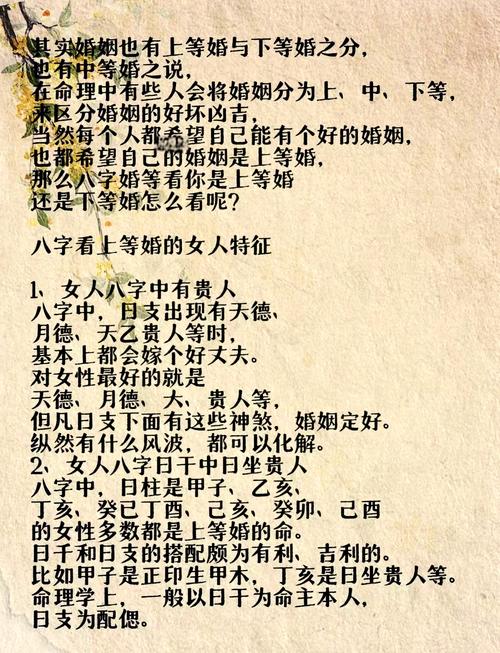 其实婚姻也有上等婚与下等婚之分，
也有中等婚之说，
在命理中有些人会将婚姻分为上、中、下等，
来区分婚姻的好坏凶吉，
当然每个人都希望自己能有个好的婚姻，
也都希望自己的婚姻是上等婚，
那么八字婚等看你是上等婚
还是下等婚怎么看呢？
八字看上等婚的女人特征
1、女人八字中有贵人
八字中，日支出现有天德、
月德、天乙贵人等时，
基本上都会嫁个好丈夫。
对女性最好的就是
天德、月德、大、贵人等，
但凡日支下面有这些神煞，婚姻定好。
纵然有什么风波，都可以化解。
2、女人八字日干中日坐贵人
八字中，日柱是甲子、乙亥、
丁亥、癸已丁酉、己亥、癸卯、己酉
的女性多数都是上等婚的命。
日千和日支的搭配颇为有利、吉利的。
比如甲子是正印生甲木，丁亥是日坐贵人等。
命理学上，一般以日干为命主本人，
日支为配偲。